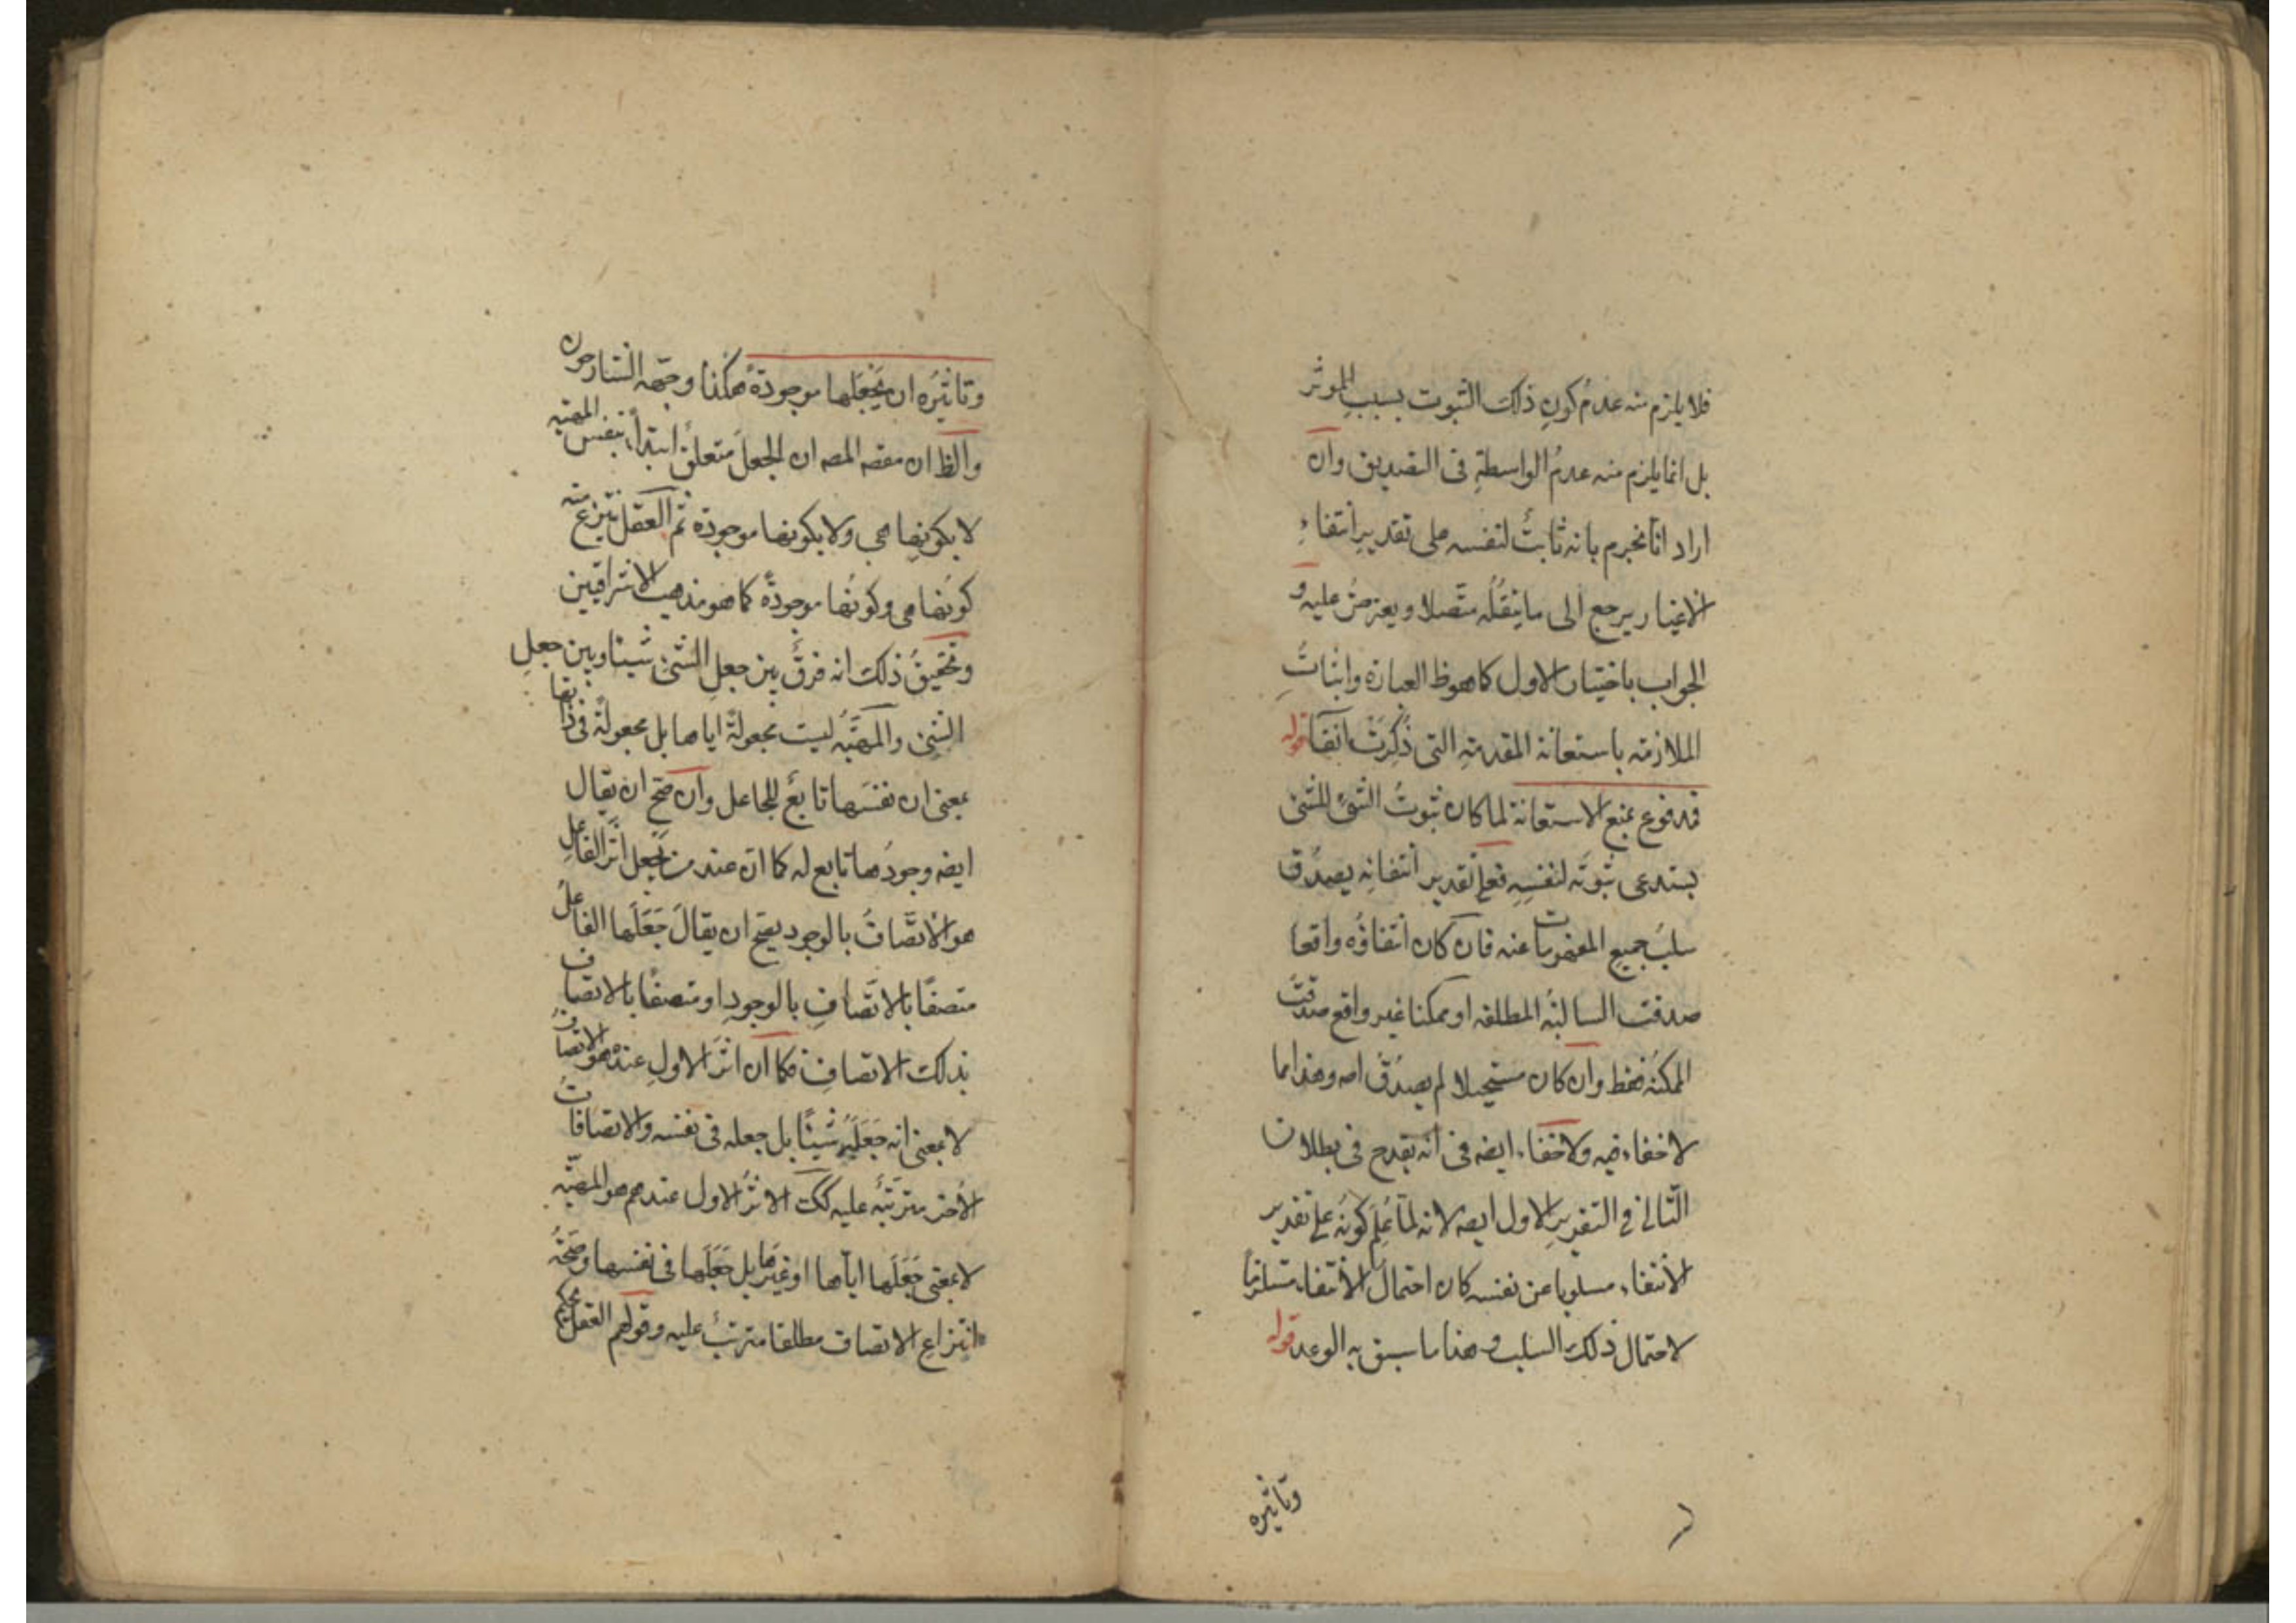 فلا يلزم منه عدمُ كونِ ذلك الثبوت بسببِ المؤثر
بل انما يلزم منه عدمُ الواسطةِ فى التصديق وان
اراد انا نجزم بانه ثابتٌ لنفسه على تقديرِ انتفاءِ
الاغيار يرجع الى ما ينقُلُه متّصلا ويعترضُ عليه و
الجواب باختيار الاول كما هو ظ العبارة واثباتِ
الملازمة باستعانة المقدمةِ التى ذُكِرَتْ آنفا قوله
فمدفوع بمنع الاستعانة لما كان ثبوتُ الشئِ للشئ
يستدعى ثبوتَه لنفسِهِ فعلى تقدير انتفائِه يصدُق
سلبُ جميعِ المفهومات عنه فان كان انتفاؤُه واقعا
صدقت السالبةُ المطلقه او ممكنا غير واقع صدقتْ
الممكنةُ فقط وان كان مستحيلا لم يصدُقْ اصه وهذا مما
لا خفاء فيه ولا خفاء ايضه فى انه يقدح فى بطلان
التّالى فى التقريرِ الاول ايضه لانه لما عُلِمَ كونُه على تقدير
الانتفاء مسلوبا عن نفسه كان احتمالُ الانتفاء مستلزمًا
لاحتمال ذلك السلب وهذا ما سبق به الوعد قوله
وتاثيره
وتاثيرُه ان يَجْعَلَها موجودةً هكذا وجّهه الشارحون
والظ ان مقصه المصه ان الجعلَ متعلقٌ ابتداءً بنفس المهيّه
لا بكونِها هى ولا بكونها موجودة ثم العقل ينتزع منه
كونَها هى وكونَها موجودةً كما هو مذهب الاشراقيين
وتحقيقُ ذلك انه فرقٌ بين جعلِ الشئِ شيئا وبين جعلِ
الشئِ والمهيّه ليست مجعولةً اياها بل مجعولةً فى ذاتها
بمعنى ان نفسَها تابعٌ للجاعل وان صحّ ان يقال
ايضه وجودُها تابع له كما انّ عند من يَجعل اثرَ الفاعلِ
هو الاتّصافُ بالوجود يصح ان يقالَ جَعَلَها الفاعلُ
متصفًا بالاتّصافِ بالوجودِ او متصفًا بالاتصاف
بذلك الاتصافِ فكما ان اثرَ الاولِ عنده هو الاتصافُ
لا بمعنى انه جَعَلَهُ شيئًا بل جعله فى نفسه والاتصافاتُ
الأُخَر مترتّبةٌ عليه كك الاثرُ الاول عندهم هو المهيّه
لا بمعنى جَعَلَها اياها او غيرَها بل جَعَلَها فى نفسها وصحّةُ
انتزاعِ الاتصاف مطلقا مترتبٌ عليه وقولهم العقل يحكم